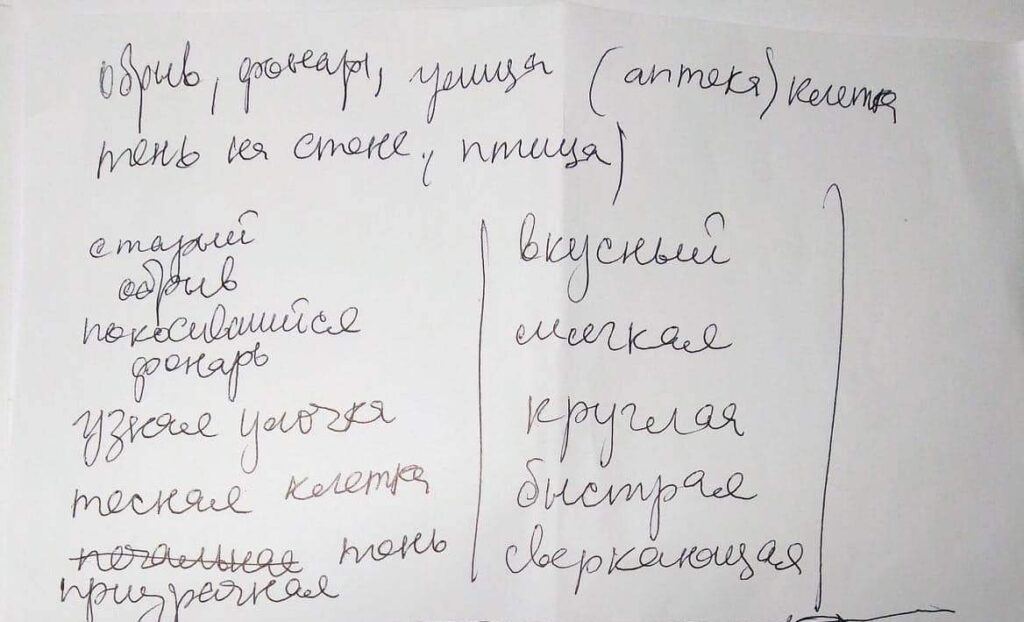 обрыв, фонарь, улица (аптека) клетка
тень на стене, (птица)
старый
обрыв
покосившийся
фонарь
узкая улочка
тесная клетка
печальная тень
призрачная
вкусный
мягкая
круглая
быстрая
сверкающая